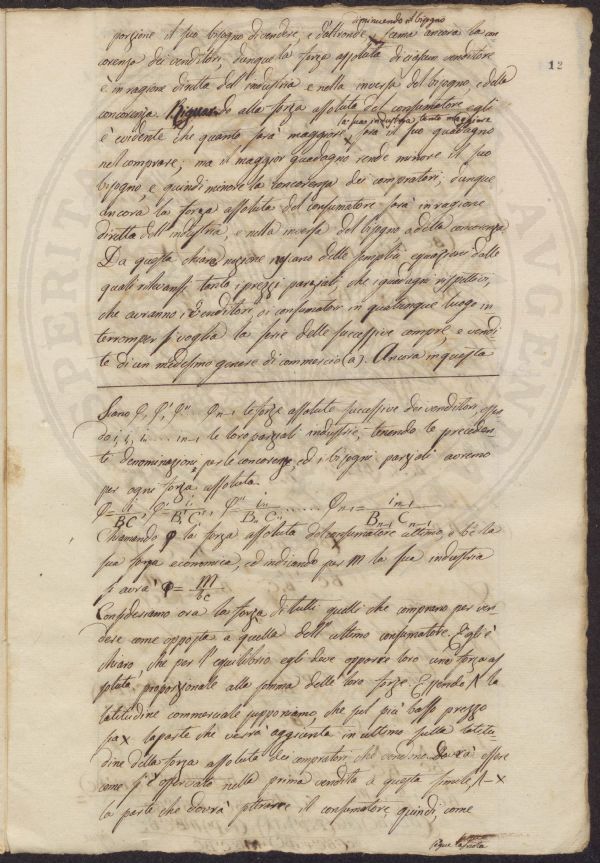 diminuendo il bisogno
porzione il suo bisogno di vendere, e d'altronde scema ancora la con
correnza dei venditori, dunque la forza assoluta di ciascun venditore
è in ragione diretta del industria e nella inversa del bisogno, e della
concorenza. Riguardo alla forza assoluta del consumatore egli
la sua industria, tanto maggiore
è evidente che quanto sarà maggiore sarà il suo guadagno
nel comprare; ma il maggior guadagno rende minore il suo
bisogno, e quindi minore la concorenza dei compratori; dunque
ancora la forza assoluta del consumatore sarà in ragione
diretta dell'industria, e nella inversa del bisogno e della concorenza
Da questa chiara nozione nascano delle semplici equazioni dalle
quali rilevansi tanto i prezzi parziali, che i guadagni rispettivi,
che avranno i Venditori, o i consumatori in qualunque luogo in
terromper si voglia la serie delle successive compre, e vendi-
te di un medesimo genere di commercio (a). Ancora in questa
Siano φ, φ', φ'' φn-1 le forze assolute successive dei venditori,
i, i, i, ...... in-1 le loro parziali industrie, tenendo le preceden-
ti denominazioni per le concorenze ed i bisogni parziali avremo
per ogni forza assoluta
φ = i/BC, φ' = i,/B,C, φ'' = i,,/B,,C,, ........ φn-1 = in-1/Bn-1 Cn-1
Chiamando φ la forza assoluta del consumatore ultimo, e bc la
sua forza economica, ed indicando per m la sua industria
si avrà φ = m/bc
Consideriamo ora la forza di tutti quelli che comprano per ven-
dere come opposta a quella dell'ultimo consumatore. Egli è
chiaro, che per l'equilibrio egli deve opporre loro una forza as
soluta proporzionale alla somma delle loro forze. Essendo Λ la
latitudine commerciale supponiamo, che sul più basso prezzo
sia x la parte che verrà aggiunta in ultimo sulla latitu-
dine della forza assoluta dei compratori che Dovrà essere
come si è osservato nella prima vendita a questa simile, Λ-x
la parte che dovrà il consumatore quindi, come
segue la nota
12